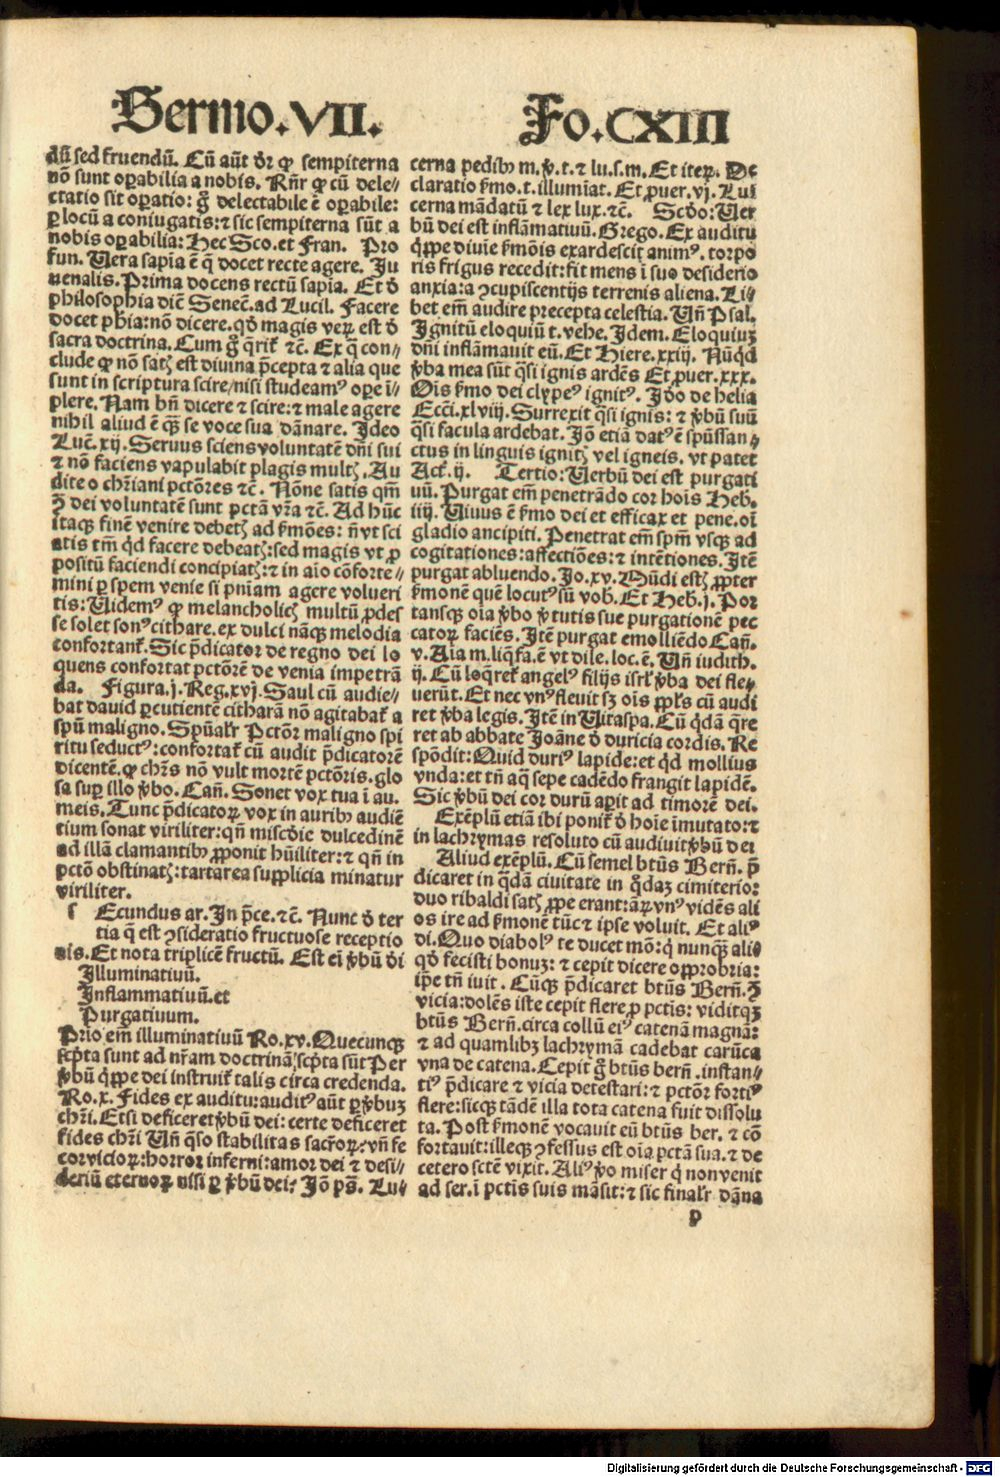 Sermo.VII.
Fo.CXIII
dū sed fruendū. Cū aūt dr̄ ꝙ sempiterna
nō sunt oꝑabilia a nobis. Rn̄r ꝙ cū dele⸗
ctatio sit oꝑatio: gͦ delectabile ē oꝑabile:
ꝑ locū a coniugatis: ⁊ sic sempiterna sūt a
nobis oꝑabilia: Hec Sco. et Fran. Pro
fun. Uera sapīa ē q̄ docet recte agere. Ju
uenalis. Prima docens rectū sapīa. Et d̄
philosophia dīc̄ Senec̄. ad Lucil. Facere
docet phīa: nō dicere. qd̄ magis veꝝ est d̄
sacra doctrina. Cum gͦ q̄rit̄ ⁊c̄. Ex q̄ con⸗
clude ꝙ nō satꝭ est divina p̄cepta ⁊ alia que
sunt in scriptura scire / nisi studeamꝰ oꝑe ī⸗
plere. Nam bn̄ dicere ⁊ scire: ⁊ male agere
nihil aliud ē qꝫ se voce sua dānare. Ideo
Luc̄. xij. Servus sciens voluntatē dn̄i sui
⁊ nō faciens vapulabit plagis multꝭ. Au
dite o chr̄iani pctōres ⁊c̄. Nōne satis qm̄
ꝯ̄ dei voluntatē sunt pctā vr̄a ⁊c̄. Ad hūc
itaqꝫ finē venire debetꝭ ad s̄mōes: n̄ vt sci
atis tm̄ qd̄ facere debeatꝭ: sed magis vt ꝓ
positū faciendi concipiatꝭ: ⁊ in aīo cōforte⸗
mini ꝑ spem venie si pn̄iam agere volueri
tis: Uidemꝰ ꝙ melancholicꝭ multū ꝓdes
se solet sonꝰ cithare. ex dulci nāqꝫ melodia
confortant̄. Sic p̄dicator de regno dei lo
quens confortat pctōrē de venia impetrā
da. Figura. j. Reg. xvj. Saul cū audie⸗
bat david ꝑcutientē citharā nō agitabat̄ a
spū maligno. Spūalr̄ Pctōr maligno spi
ritu seductꝰ: confortat̄ cū audit p̄dicatorē
dicentē. ꝙ chr̄s nō vult mortē pctōris. glo
sa suꝑ illo v̄bo. Can̄. Sonet vox tua ī au.
meis. Tunc p̄dicatoꝝ vox in auribꝰ audiē
tium sonat viriliter: qn̄ miscd̄ie dulcedinē
ad illā clamantibꝰ ꝓponit hūiliter: ⁊ qn̄ in
pctō obstinatꝭ: tartarea supplicia minatur
viriliter.
s Ecundus ar. In p̄ce. ⁊c̄. Nunc d̄ ter
tia q̄ est ꝯsideratio fructuose receptio
nis. Et nota triplicē fructū. Est eī v̄bū d̄i
Illuminativū.
Inflammativū. et
Purgativum.
Prīo em̄ illuminativū Ro. xv. Quecunqꝫ
sc̄pta sunt ad nr̄am doctrinā / sc̄pta sūt Per
v̄bū q̄ppe dei instruit̄ talis circa credenda.
Ro. x. Fides ex auditu: auditꝰ aūt ꝑ v̄buꝫ
chr̄i. Etsi deficeret v̄bū dei: certe deficeret
fides chr̄i Un̄ q̄so stabilitas sacr̄oꝝ: vn̄ fe
cor vicioꝝ: horror inferni: amor dei ⁊ desi⸗
deriū eternoꝝ nisi ꝑ v̄bū dei? Jō ps̄. Lu⸗
cerna pedibꝰ m. v̄. t. ⁊ lu. s. m. Et iteꝝ. De
claratio s̄mo. t. illumīat. Et ꝓuer. vj. Lu⸗
cerna mādatū ⁊ lex lux. ⁊c̄. Scd̄o: Uer
bū dei est inflāmativū. Grego. Ex auditu
q̄ppe divīe s̄mōis exardescit animꝰ. torpo
ris frigus recedit: fit mens ī suo desiderio
anxia: a ꝯcupiscentijs terrenis aliena. Li⸗
bet em̄ audire precepta celestia. Un̄ Psal.
Ignitū eloquiū t. vehe. Idem. Eloquiuꝫ
dn̄i inflāmauit eū. Et Hiere. xxiij. Nūqd̄
v̄ba mea sūt q̄si ignis ardēs Et ꝓuer. xxx.
Oīs s̄mo dei clypeꝰ ignitꝰ. Jdo de helia
Ecci. xlviij. Surrexit q̄si ignis: ⁊ v̄bū suū
q̄si facula ardebat. Jō etiā datꝰ ē spūssan⸗
ctus in linguis ignitꝭ vel igneis. vt patet
Act̄. ij. Tertio: Uerbū dei est purgati
uū. Purgat em̄ penetrādo cor hoīs Heb.
iiij. Uivus ē s̄mo dei et efficax et pene. oī
gladio ancipiti. Penetrat em̄ spm̄ vsqꝫ ad
cogitationes: affectiōes: ⁊ intētiones. Itē
purgat abluendo. Jo. xv. Mūdi estꝭ ꝓpter
s̄monē quē locutꝰ sū vob. Et Heb. j. Por
tansqꝫ oīa v̄bo v̄tutis sue purgationē pec
catoꝝ faciēs. Itē purgat emolliēdo Can̄.
v. Aīa m. liq̄fa. ē vt dile. loc. ē. Un̄ iudith.
ij. Cū loq̄ret̄ angelꝰ filijs isrl̄ v̄ba dei fle⸗
uerūt. Et nec vnꝰ fleuit sꝫ oīs ppl̄s cū audi
ret v̄ba legis. Itē in Uitaspa. Cū q̄dā q̄re
ret ab abbate Joāne d̄ duricia cordis. Re
spōdit: Quid duriꝰ lapide: et qd̄ mollius
vnda: et tn̄ aq̄ sepe cadēdo frangit lapidē.
Sic v̄bū dei cor durū aꝑit ad timorē dei.
Exēplū etiā ibi ponit̄ d̄ hoīe īmutato: ⁊
in lachrymas resoluto cū audiuit v̄bū dei
Aliud exēplū. Cū semel btūs Bern̄. p̄
dicaret in q̄dā civitate in q̄daꝫ cimiterio:
duo ribaldi satꝭ ꝓpe erant: aꝝ vnꝰ vidēs ali
os ire ad s̄monē tūc ⁊ ipse voluit. Et aliꝰ
di. Quo diabolꝰ te ducet mō: q̇ nunqꝫ ali⸗
qd̄ fecisti bonuꝫ: ⁊ cepit dicere opprobria:
ip̄e tn̄ iuit. Cūqꝫ p̄dicaret btūs Bern̄. ꝯ̄
vicia: dolēs iste cepit flere ꝓ pctīs: viditqꝫ
btūs Bern̄. circa collū eiꝰ catenā magnā:
⁊ ad quamlibꝫ lachrymā cadebat carūca
vna de catena. Cepit gͦ btūs bern̄. instan⸗
tiꝰ p̄dicare ⁊ vicia detestari: ⁊ pctōr fortiꝰ
flere: sicqꝫ tādē illa tota catena fuit dissolu
ta. Post s̄monē vocauit eū btūs ber. ⁊ cō
fortauit: illeqꝫ ꝯfessus est oīa pctā sua. ⁊ de
cetero sctē vixit. Aliꝰ v̄o miser q̇ non venit
ad ser. ī pctīs suis māsit: ⁊ sic finalr̄ dāna
p
Digitalisierung gefördert durch die Deutsche Forschungsgemeinschaft - DFG